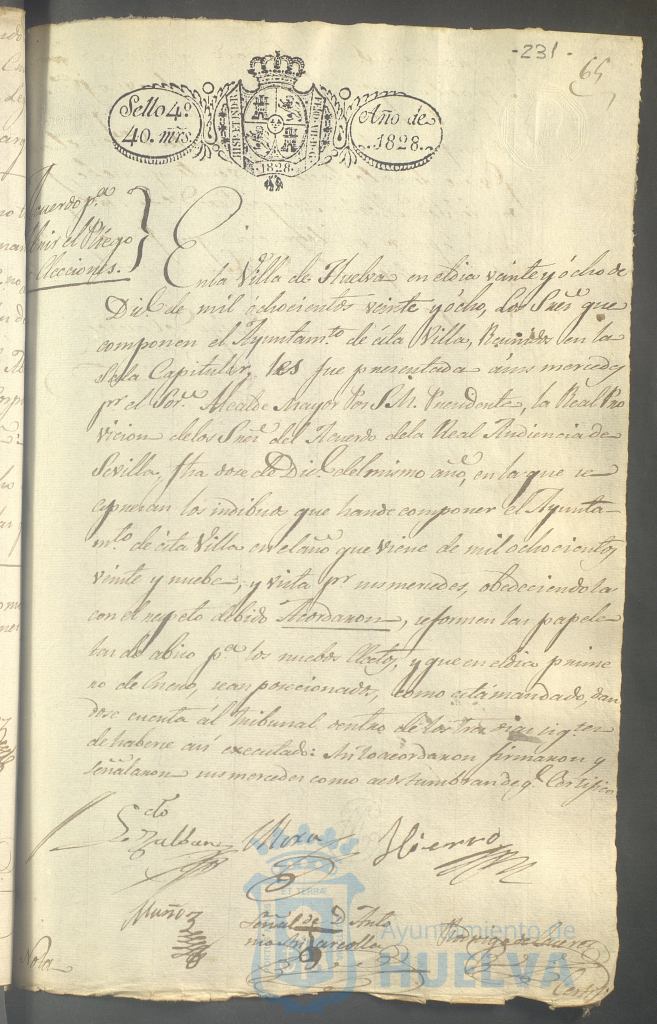 -231-
65
Sello 4º
40. mrs.
Año de
1828.
HISP. ET IND. R
1828
Acuerdo p.ª
abrir el Pliego
Elecciones.
En la Villa de Huelva en el dia veinte y ócho de
Dic.e de mil óchocientos veinte y ócho, Los Sres que
componen el Ayuntam.to de ésta Villa, Reunidos en la
Sala Capitular, les fue presentada á sus mercedes
pr el Sor. Alcalde Mayor por S.M. Precidente, la Real Pro
vicion de los Sres del Acuerdo de la Real Audiencia de
Sevilla, fha doce de Dic.e del mismo año, en la que se
expresan los indibiduos que han de componer el Ayunta-
m.to de ésta Villa en el año que viene de mil ochocientos
veinte y nuebe, y vista pr sus mercedes, obedeciendola
con el respeto debido Acordaron, se formen las papele
tas de abiso p.ª los nuebos Electos, y que en el dia prime
ro de Enero, sean posecionados, como está mandado, dan
dose cuenta ál tribunal dentro de los tres dias sig.tes
de haberse asi executado: Asi lo acordaron firmaron y
señalaron sus mercedes como acostumbran de q.e Certifico
Mora Hierro
Muñoz
Señal de D Anto
Nota
ET TERRÆ
Ayuntamiento de
HUELVA